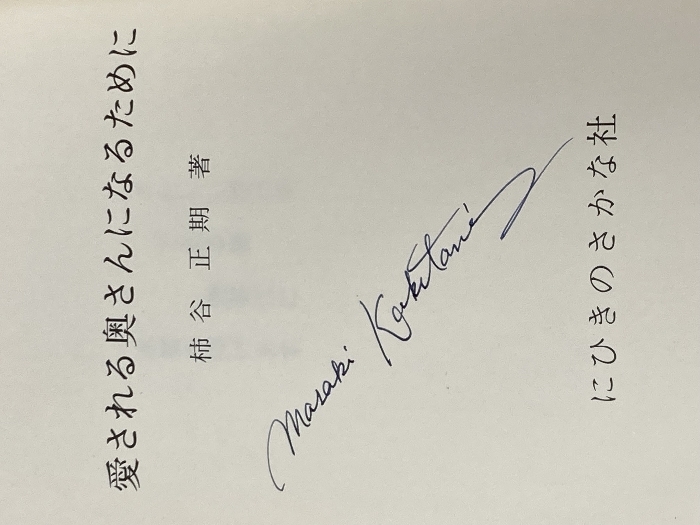 愛される奥さんになるために
柿谷正期 著
Masaki Kakitani
にひきのさかな社